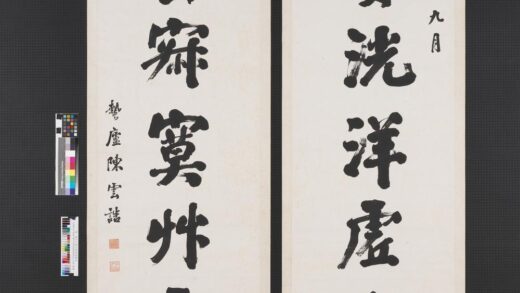 九月
洸洋虛
寂寞艸
蟄廬陳雲誥